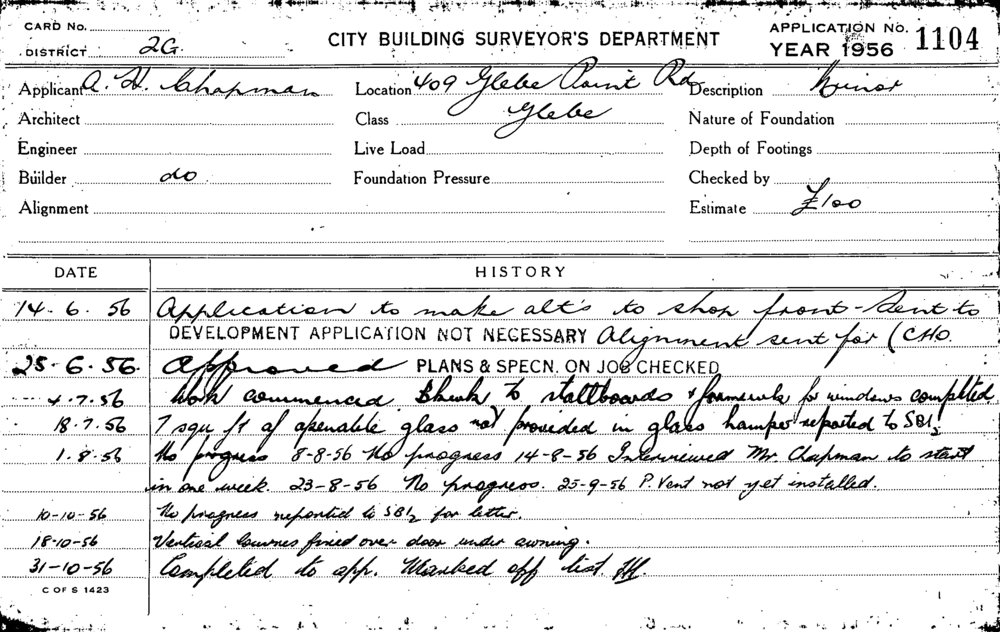 CARD No.
DISTRICT 2G.
CITY BUILDING SURVEYOR'S DEPARTMENT
APPLICATION No. 1104
YEAR 1956
Applicant A. H. Chapman Location 409 Glebe Point Rd Description Minor
Architect Class Glebe Nature of Foundation
Engineer Live Load Depth of Footings
Builder do Foundation Pressure Checked by
Alignment Estimate £100
DATE HISTORY
14. 6. 56 Application to make alt's to shop front - Sent to
DEVELOPMENT APPLICATION NOT NECESSARY Alignment sent for (CHO.
25-6.56. Approved PLANS & SPECN. ON JOB CHECKED
4.7.56 Work commenced. to stallboards & framework for windows completed
18.7.56 7 squ ft of openable glass not provided in glass hamper reported to SBI
1.8.56 No progress 8-8-56 No progress 14-8-56 Interviewed Mr. Chapman to start
in one week. 23-8-56 No progress. 25-9-56 P. Vent not yet installed.
10-10-56 No progress reported to SBI for letter.
18-10-56 Vertical louvres fixed over door under awning.
31-10-56 Completed to app. Marked off list.
C OF S 1423